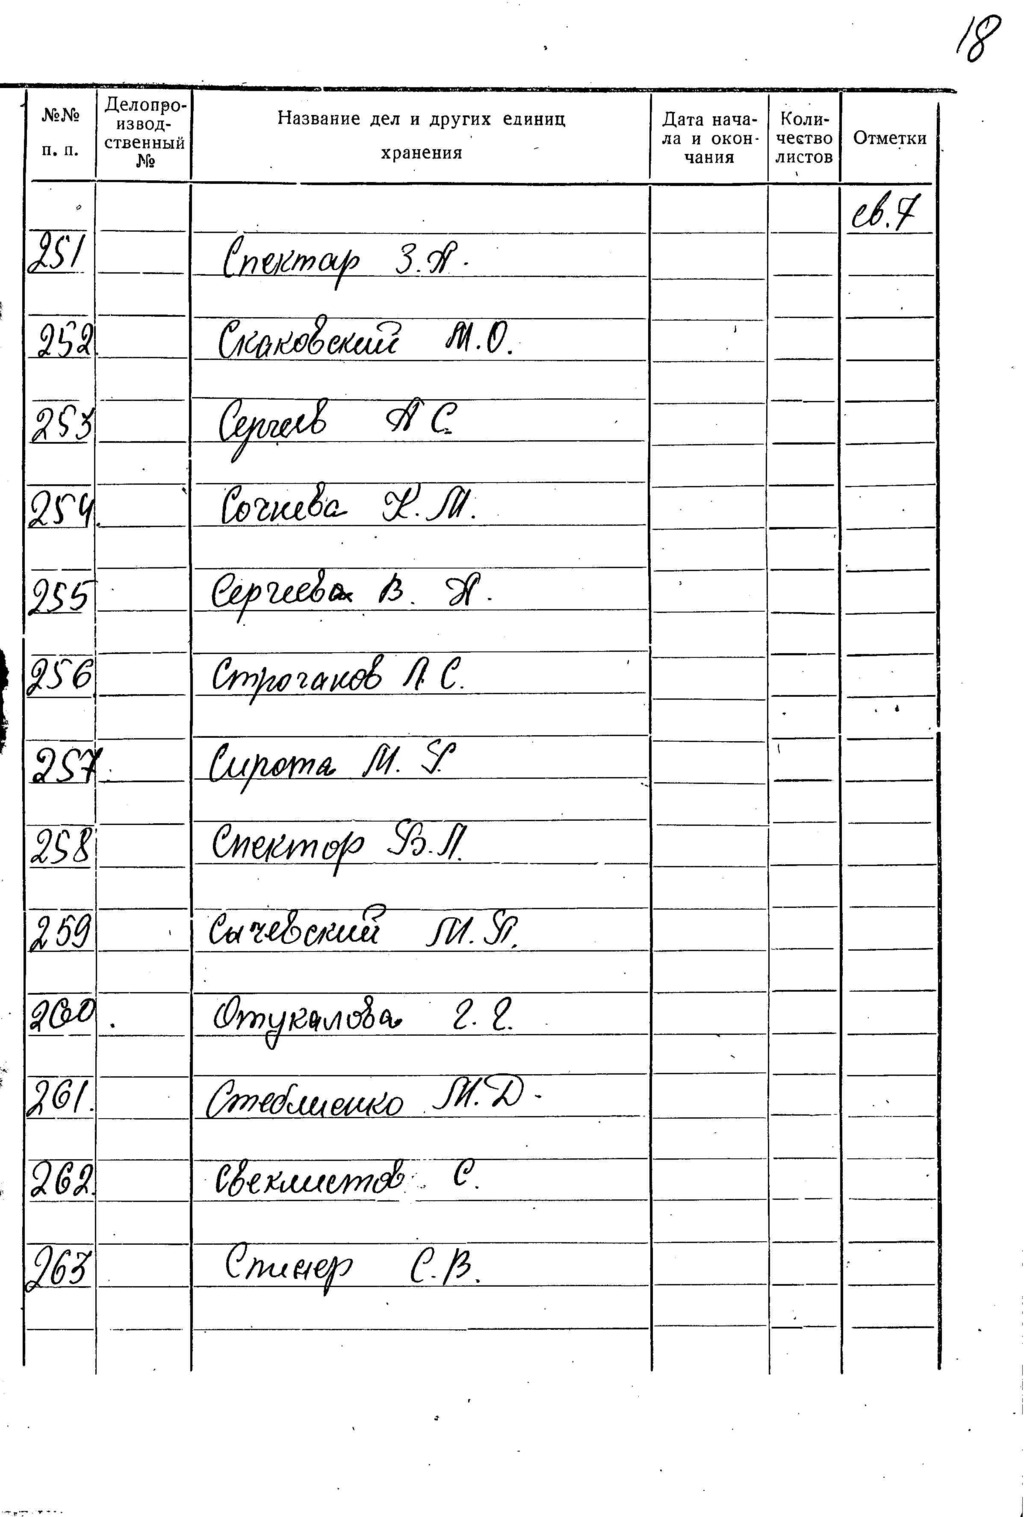 18
№№ п. п. Делопро-извод-ственный № Название дел и других единиц хранения Дата нача-ла и окон-чания Коли-чество листов Отметки
св. 7
251 Спектар З. А.
252 Скаковский М. О.
253 Сергеев А С.
254. Сочнева К. М.
255 Сергеева В. А.
256 Строганов Л С.
257. Сирота М.
258 Спектор В. Л.
259 Сычевский М.
260. Отукалова Г. Г.
261. Стеблиенко М. Д.
262. Свеклистов С.
263 Спинер С. В.